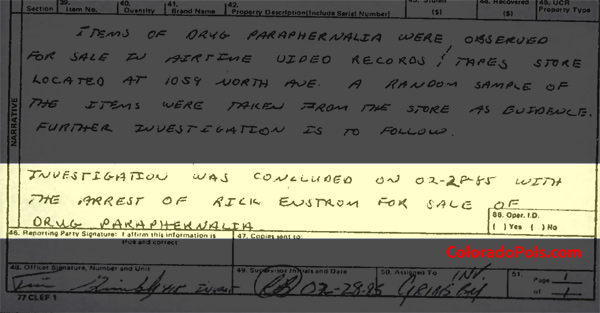 Section
39. Item No.
40. Quantity
41. Brand Name
42. Property Description (Include Serial Number)
($)
48. Recovered ($)
45. UCR Property Type
NARRATIVE
ITEMS OF DRUG PARAPHERNALIA WERE OBSERVED
FOR SALE IN AIRTIME VIDEO RECORDS / TAPES STORE
LOCATED AT 1059 NORTH AVE. A RANDOM SAMPLE OF
THE ITEMS WERE TAKEN FROM THE STORE AS EVIDENCE.
FURTHER INVESTIGATION IS TO FOLLOW.
INVESTIGATION WAS CONCLUDED ON 02-28-85 WITH
THE ARREST OF RICK ENSTROM FOR SALE OF
DRUG PARAPHERNALIA
88. Oper. I.D.
( ) Yes ( ) No
46. Reporting Party Signature: I affirm this information is
true and correct.
47. Copies sent to:
ColoradoPols.com
48. Officer Signature, Number and Unit
49. Supervisor Initials and Date
02-28-85
50. Assigned To
INV.
GRIMSBY
51.
Page 1
of 1
77 CLEF 1